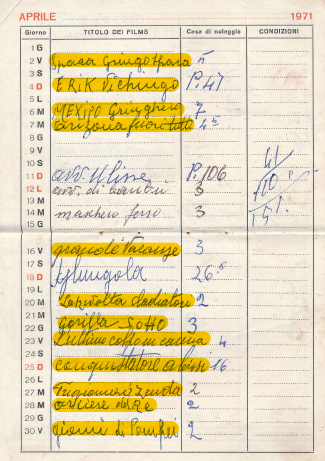 APRILE 1971
Giorno TITOLO DEI FILMS Casa di noleggio CONDIZIONI
1 G
2 V Spara Gringo Spara 5
3 S
4 D ERIK Vichingo P. 47
5 L
6 M MEXICO 7
7 M Arizona 4 5
8 G
9 V
10 S
11 D avv. Ulisse P. 106
12 L avv. di 3
13 M
14 M maschera ferro 3
15 G
41
110 P.
151.
16 V 3
17 S
18 D 26 5
19 L
20 M La rivolta Gladiatori 2
21 M
22 G Gorilla SOHO 3
23 V L'ultimo colpo in canna 4
24 S
25 D conquistatore 16
26 L
27 M Prigioniero Zenda 2
28 M arciere del Re 2
29 G
30 V giorni di Pompei 2